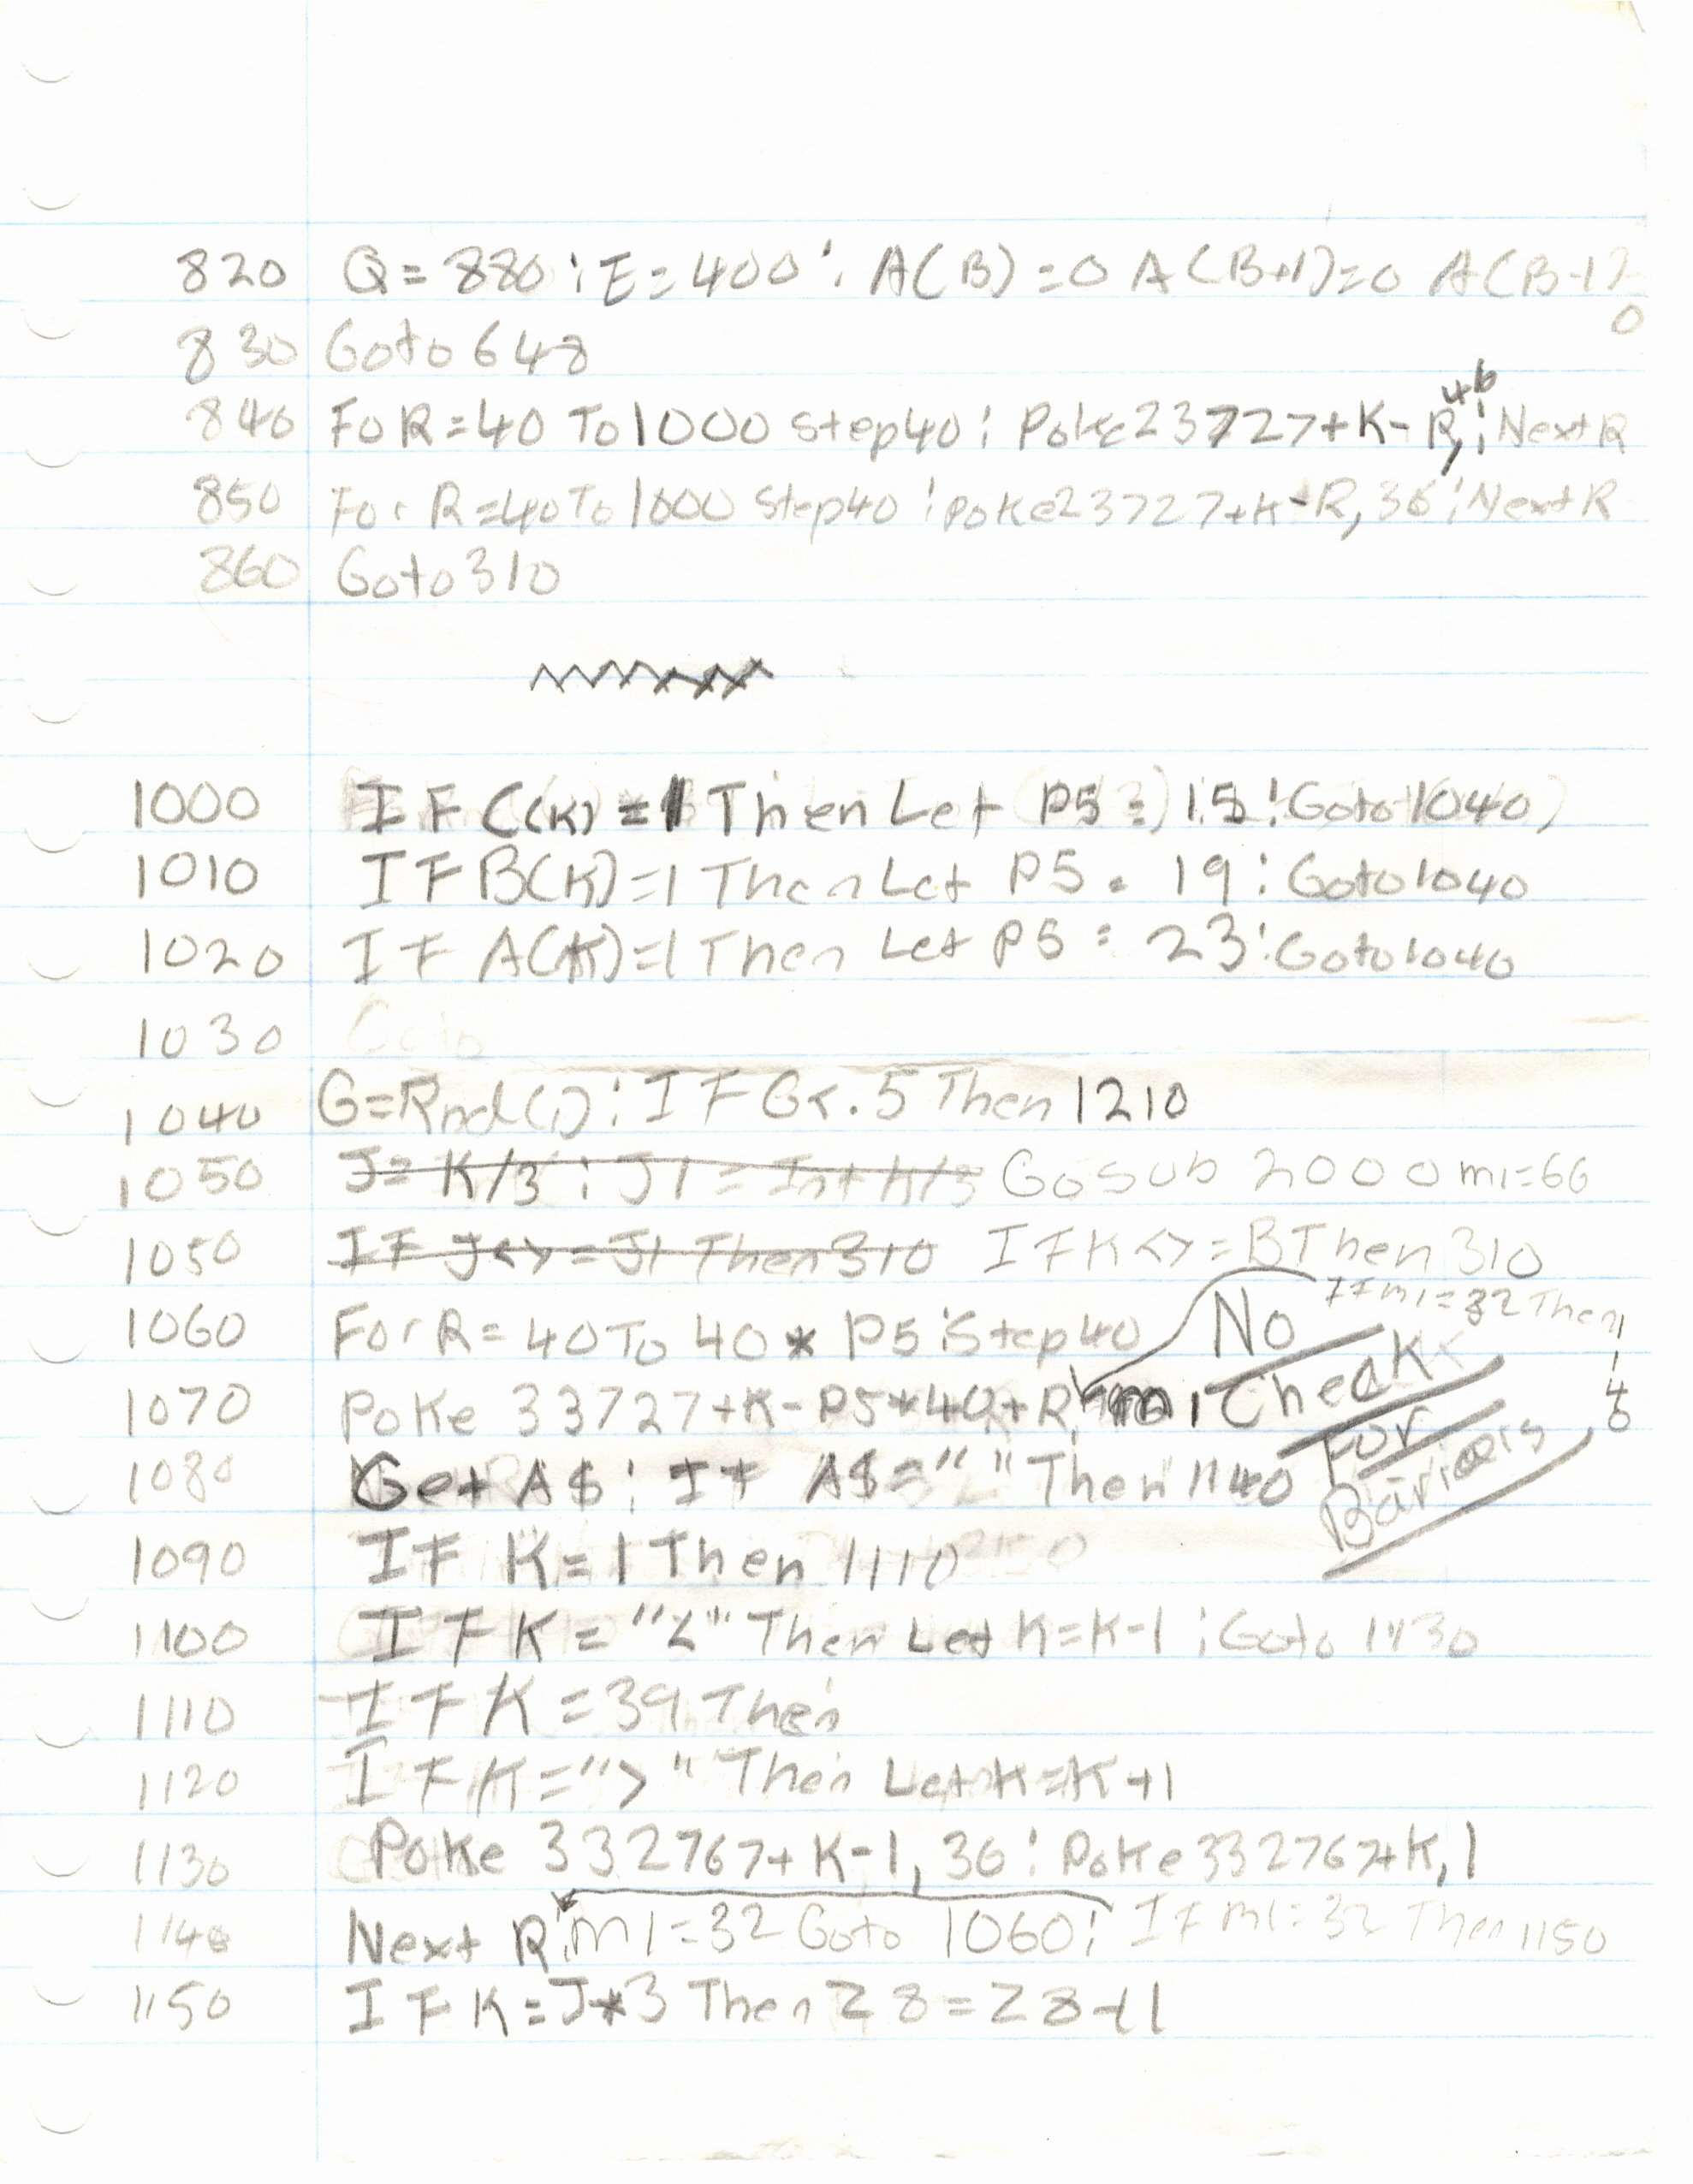 820 Q=880 : E=400 : A(B)=0 A(B+1)=0 A(B-1)=
0
830 Goto 648
46
840 FoR R=40 To 1000 Step40 : Poke23727+K-R, : Next R
850 For R=40To 1000 Step40 : Poke23727+K-R,36 : Next R
860 Goto 310
1000 IF C(K) = 1 Then Let P5 = 15 : Goto 1040)
1010 IF B(K)=1 Then Let P5 = 19 : Goto1040
1020 IF A(K)=1 Then Let P5 = 23 : Goto1040
1030 Goto
1040 G=Rnd(1) : IF G<.5 Then 1210
1050 J= K/3 : J1 = Int K/3 GoSub 2000 m1=66
1050 IF J<>=J1 Then 310 IF K<>=B Then 310
1060 For R=40To 40*P5 : Step40 No IF m1=32 Then 1140
1070 Poke 33727+K-P5*40+R, m1 Check
1080 Get A$ : If A$="" Then 1140 For
Bariers
1090 IF K=1 Then 1110
1100 IF K="<" Then Let K=K-1 : Goto 1130
1110 IF K=39 Then
1120 IF K=">" Then Let K=K+1
1130 Poke 332767+K-1,36 : Poke332767+K,1
1140 Next R : m1=32 Goto 1060 : IF m1=32 Then 1150
1150 IF K=J*3 Then Z8=Z8+1